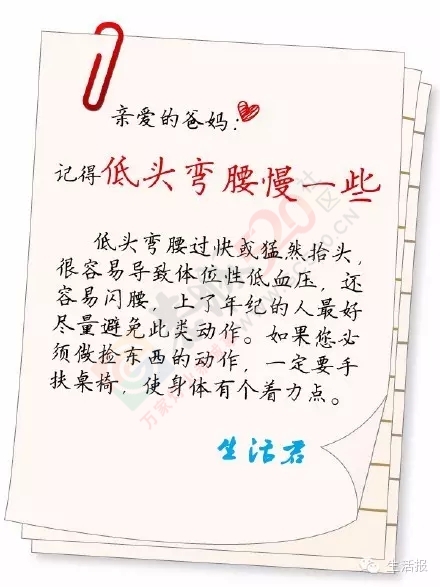 亲爱的爸妈：
记得低头弯腰慢一些
低头弯腰过快或猛然抬头，
很容易导致体位性低血压，还
容易闪腰，上了年纪的人最好
尽量避免此类动作。如果您必
须做捡东西的动作，一定要手
扶桌椅，使身体有个着力点。
生活君
生活报